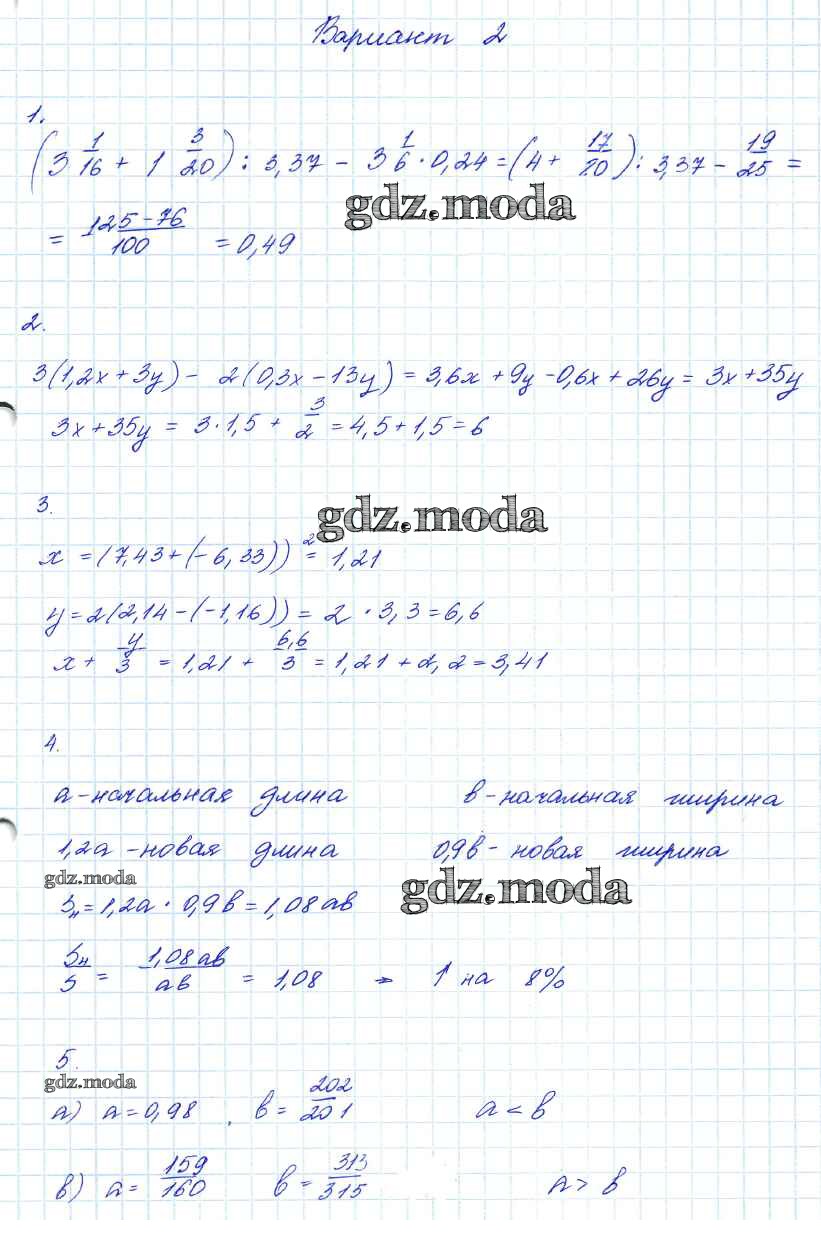 Вариант 2
1.
(3 1/16 + 1 3/20) : 3,37 - 3 1/6 · 0,24 = (4 + 17/20) : 3,37 - 19/25 =
gdz.moda
= 125-76/100 = 0,49
2.
3(1,2x + 3y) - 2(0,3x - 13y) = 3,6x + 9y - 0,6x + 26y = 3x + 35y
3x + 35y = 3 · 1,5 + 3/2 = 4,5 + 1,5 = 6
3.
gdz.moda
x = (7,43 + (-6,33))² = 1,21
y = 2(2,14 - (-1,16)) = 2 · 3,3 = 6,6
x + y/3 = 1,21 + 6,6/3 = 1,21 + 2,2 = 3,41
4.
a - начальная длина в - начальная ширина
1,2a - новая длина 0,9в - новая ширина
gdz.moda gdz.moda
Sн = 1,2a · 0,9в = 1,08 ав
Sн/S = 1,08 ав/ав = 1,08 → ↑ на 8%
5.
gdz.moda
а) a = 0,98, в = 202/201 a < в
в) a = 159/160 в = 313/315 a > в